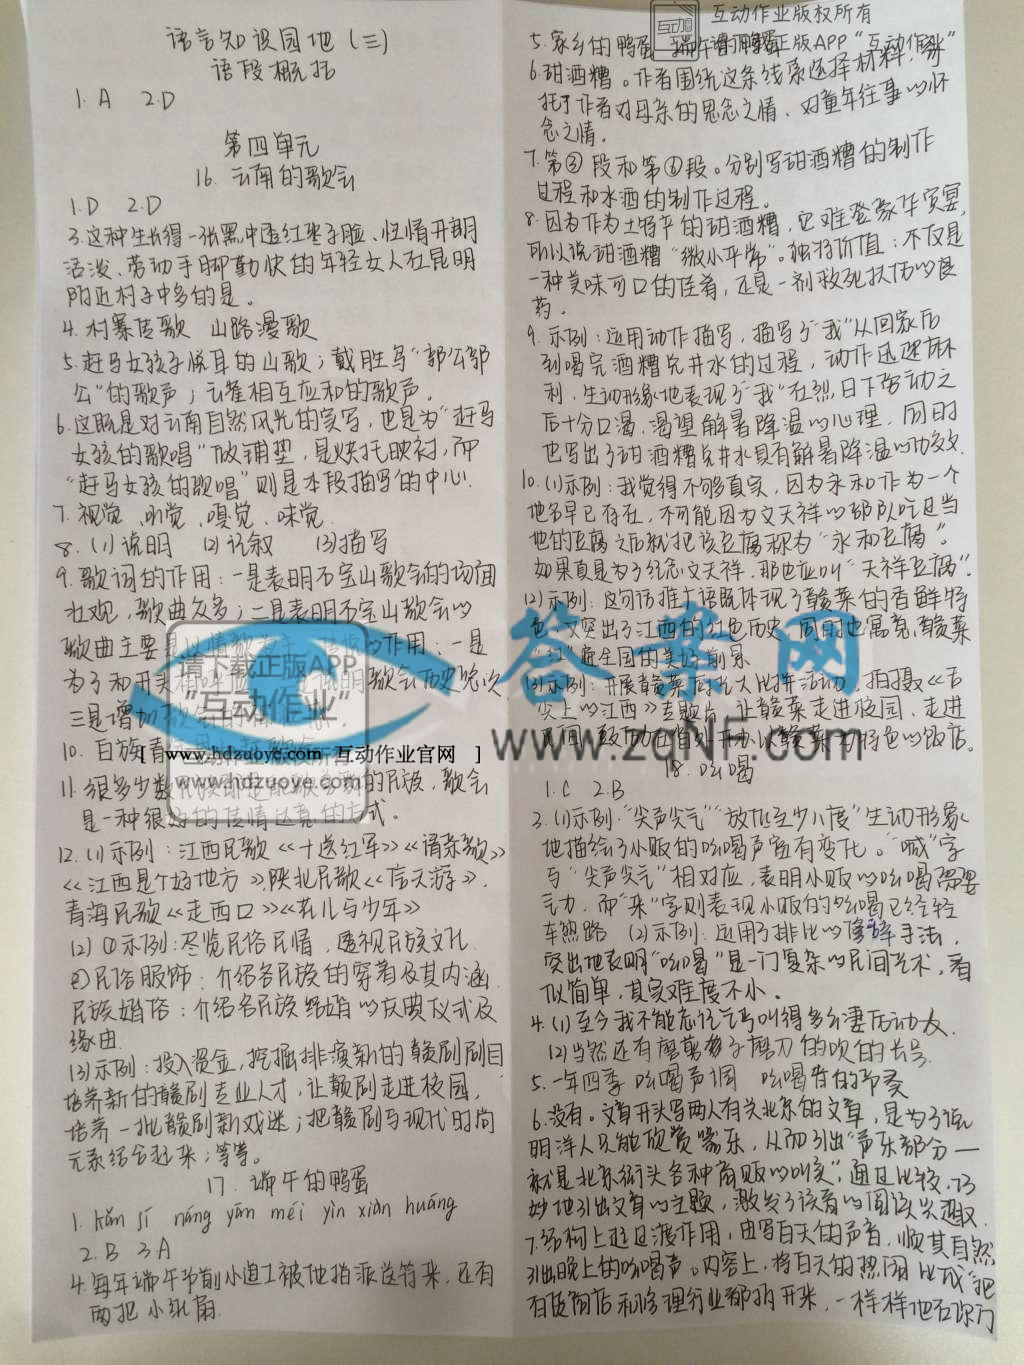 语言知识园地(三)
语段概括
1. A 2. D
第四单元
16. 云南的歌会
1. D 2. D
3. 这种生长得一张黑中透红枣子脸、性情开朗
活泼、劳动手脚勤快的年轻女人在昆明
附近村子中多的是。
4. 村寨传歌 山路漫歌
5. 赶马女孩子悦耳的山歌；戴胜鸟“郭公郭
公”的歌声；云雀相互应和的歌声。
6. 这既是对云南自然风光的实写，也是为“赶马
女孩的歌唱”做铺垫，是烘托映衬，而
“赶马女孩的歌唱”则是本段描写的中心.
7. 视觉、听觉、嗅觉、味觉.
8. (1)说明 (2)记叙 (3)描写
9. 歌词的作用：一是表明石宝山歌会的场面
壮观，歌曲众多；二是表明石宝山歌会的
歌曲主要是以情歌为主 作用：一是
为了和开头 歌会历史悠久
三是增加
10. 白族青
11. 很多少数 的民族，歌会
是一种很 的传情达意的方式。
12. (1)示例：江西民歌《十送红军》《请茶歌》
《江西是个好地方》.陕北民歌《信天游》.
青海民歌《走西口》《花儿与少年》
(2) ①示例：尽览民俗民情，透视民族文化.
②民俗服饰：介绍各民族的穿着及其内涵.
民族婚俗：介绍各民族结婚的庆典仪式及
缘由.
(3)示例：投入资金，挖掘排演新的赣剧剧目
培养新的赣剧专业人才，让赣剧走进校园，
培养一批赣剧新戏迷；把赣剧与现代时尚
元素结合起来；等等。
17. 端午的鸭蛋
1. kǎn sī náng yān méi yìn xiàn huáng
2. B 3. A
4. 每年端午节前小道士被他拍派送符来，还有
两把小纸扇.
5. 家乡的鸭蛋 端午的鸭蛋
6. 甜酒糟。作者围绕这条线索选择材料，寄
托了作者对母亲的思念之情、对童年往事的怀
念之情.
7. 第②段和第⑥段。分别写甜酒糟的制作
过程和水酒的制作过程。
8. 因为作为土特产的甜酒糟，它难登豪华宾宴，
所以说甜酒糟“微小平常”。独特价值：不仅是
一种美味可口的佳肴，还是一剂救死扶伤的良
药。
9. 示例：运用动作描写，描写了“我”从回家后
到喝完酒糟兑井水的过程，动作迅速麻
利，生动形象地表现了“我”在烈日下劳动之
后十分口渴、渴望解暑降温的心理，同时
也写出了甜酒糟兑井水具有解暑降温的功效.
10. (1)示例：我觉得不够真实，因为永和作为一个
地名早已存在，不可能因为文天祥的部队吃过当
地的豆腐之后就把该豆腐称为“永和豆腐”。
如果真是为了纪念文天祥，那也应叫“天祥豆腐”.
(2)示例：这句话推广语既体现了赣菜的香鲜特
色，又突出了江西的红色历史，同时也寓意赣菜
“红”遍全国的美好前景
(3)示例：开展赣菜厨艺大比拼活动，拍摄《舌
尖上的江西》专题片，让赣菜走进校园、走进
赣菜为特色的饭店。
18. 吆喝
1. C 2. B
3. (1)示例：“尖声尖气”“放低至少八度”生动形象
地描绘了小贩的吆喝声富有变化。“喊”字
与“尖声尖气”相对应，表明小贩的吆喝需要
气力，而“来”字则表现小贩的吆喝已经轻
车熟路 (2)示例：运用了排比的修辞手法，
突出地表明“吆喝”是一门复杂的民间艺术，看
似简单，其实难度不小。
4. (1)至今我不能忘怀乞丐叫得多么凄厉动人.
(2)当然还有磨剪子磨刀的吹的长号.
5. 一年四季 吆喝声调 吆喝者的节奏
6. 没有。文章开头写两人有关北京的文章，是为了说
明洋人只能欣赏器乐，从而引出“声乐部分——
就是北京街头各种商贩的叫卖”，通过比较，巧
妙地引出文章的主题，激发了读者的阅读兴趣.
7. 结构上起过渡作用，由写白天的声音，顺其自然
引出晚上的吆喝声。内容上，将白天的热闹比成“把
百货商店和修理行业都拍开来，一样样地在你门
互动作业版权所有
请下载正版APP“互动作业”
请下载正版APP
“互动作业”
www.hdzuoye.com
[ www.hdzuoye.com 互动作业官网 ]
答案网
www.zqNF.com